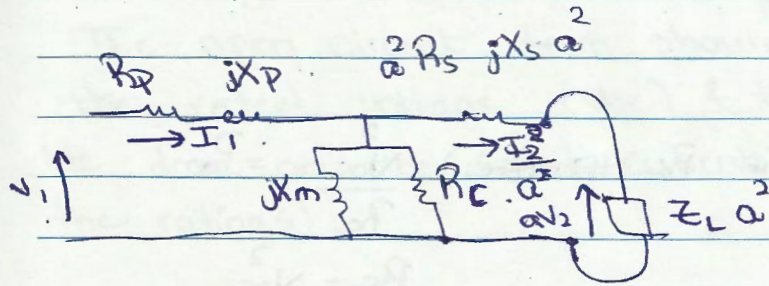 Rp jXp a²Rs jXs a²
→ I₁ → I₂
V₁ jXm Rc a aV₂ ZL a²